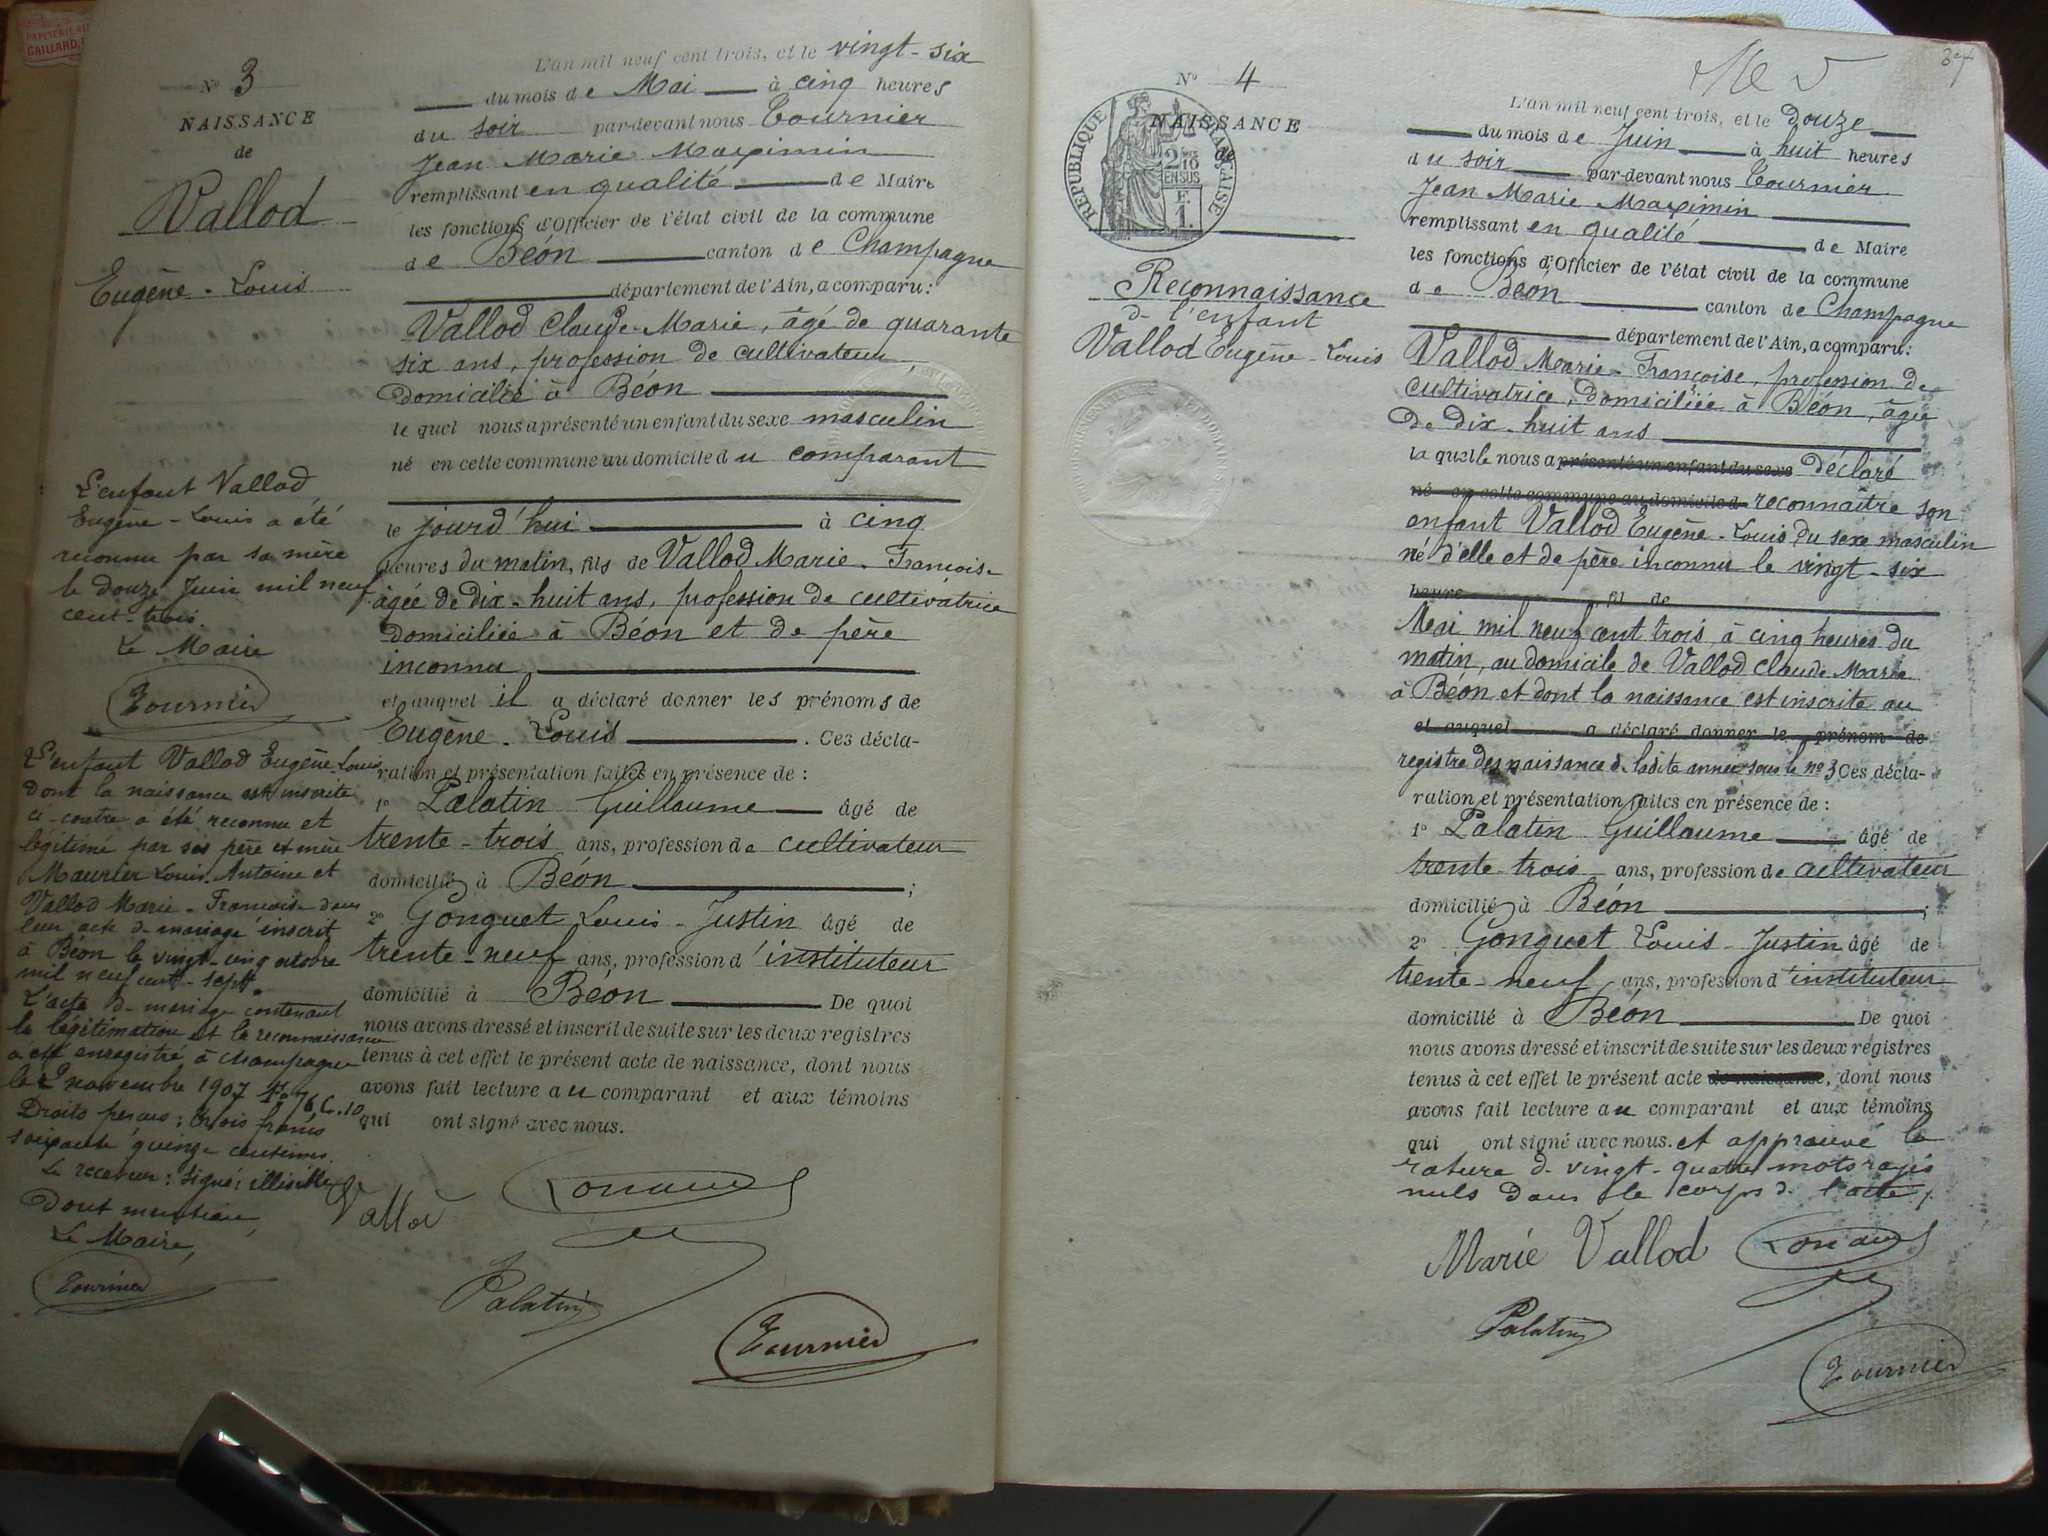 PAPETERIE
GAILLARD
N° 3
NAISSANCE
de
Vallod
Eugène-Louis
L'enfant Vallod
Eugène-Louis a été
reconnu par sa mère
le douze Juin mil neuf
cent-trois.
Le Maire
Tournier
L'enfant Vallod Eugène-Louis
dont la naissance est inscrite
ci-contre a été reconnu et
légitimé par ses père et mère
Maurier Louis-Antoine et
Vallod Marie-Françoise dans
leur acte de mariage inscrit
à Béon le vingt-cinq octobre
mil neuf cent-sept.
L'acte de mariage contenant
la légitimation et la reconnaissance
a été enregistré à Champagne
le 2 novembre 1907 Fo 76 C. 10
Droits perçus : trois francs
soixante quinze centimes.
Le receveur : signé : illisible
Dont mention,
Le Maire,
Tournier
L'an mil neuf cent trois, et le vingt-six
du mois de Mai à cinq heures
du soir par-devant nous Tournier
Jean Marie Maximin
remplissant en qualité de Maire
les fonctions d'Officier de l'état civil de la commune
de Béon canton de Champagne
département de l'Ain, a comparu :
Vallod Claude-Marie, âgé de quarante
six ans, profession de cultivateur,
domicilié à Béon
le quel nous a présenté un enfant du sexe masculin
né en cette commune au domicile du comparant
le jourd'hui à cinq
heures du matin, fils de Vallod Marie-Françoise
âgée de dix-huit ans, profession de cultivatrice
domiciliée à Béon et de père
inconnu
et auquel il a déclaré donner les prénoms de
Eugène-Louis. Ces décla-
ration et présentation faites en présence de :
1° Palatin Guillaume âgé de
trente-trois ans, profession de cultivateur
domicilié à Béon ;
2° Gonguet Louis-Justin âgé de
trente-neuf ans, profession d'instituteur
domicilié à Béon De quoi
nous avons dressé et inscrit de suite sur les deux registres
tenus à cet effet le présent acte de naissance, dont nous
avons fait lecture au comparant et aux témoins
qui ont signé avec nous.
Vallod
Palatin
Tournier
37
N° 4
NAISSANCE
de
RÉPUBLIQUE FRANÇAISE
2/10 EN SUS
F.
1.
Reconnaissance
de l'enfant
Vallod Eugène-Louis
L'an mil neuf cent trois, et le douze
du mois de Juin à huit heures
du soir par-devant nous Tournier
Jean Marie Maximin
remplissant en qualité de Maire
les fonctions d'Officier de l'état civil de la commune
de Béon canton de Champagne
département de l'Ain, a comparu :
Vallod Marie-Françoise, profession de
cultivatrice, domiciliée à Béon, âgée
de dix-huit ans
la quelle nous a présenté un enfant du sexe déclaré
né en cette commune au domicile d reconnaître son
enfant Vallod Eugène-Louis du sexe masculin
né d'elle et de père inconnu le vingt-six
heure fil de
Mai mil neuf cent trois à cinq heures du
matin, au domicile de Vallod Claude Marie
à Béon et dont la naissance est inscrite au
et auquel a déclaré donner le prénom de
registre des naissance de ladite année sous le n° 3 Ces décla-
ration et présentation faites en présence de :
1° Palatin Guillaume âgé de
trente-trois ans, profession de cultivateur
domicilié à Béon ;
2° Gonguet Louis-Justin âgé de
trente-neuf ans, profession d'instituteur
domicilié à Béon De quoi
nous avons dressé et inscrit de suite sur les deux registres
tenus à cet effet le présent acte de naissance, dont nous
avons fait lecture au comparant et aux témoins
qui ont signé avec nous. et approuvé la
rature de vingt-quatre mots rayés
nuls dans le corps de l'acte.
Marie Vallod
Palatin
Tournier